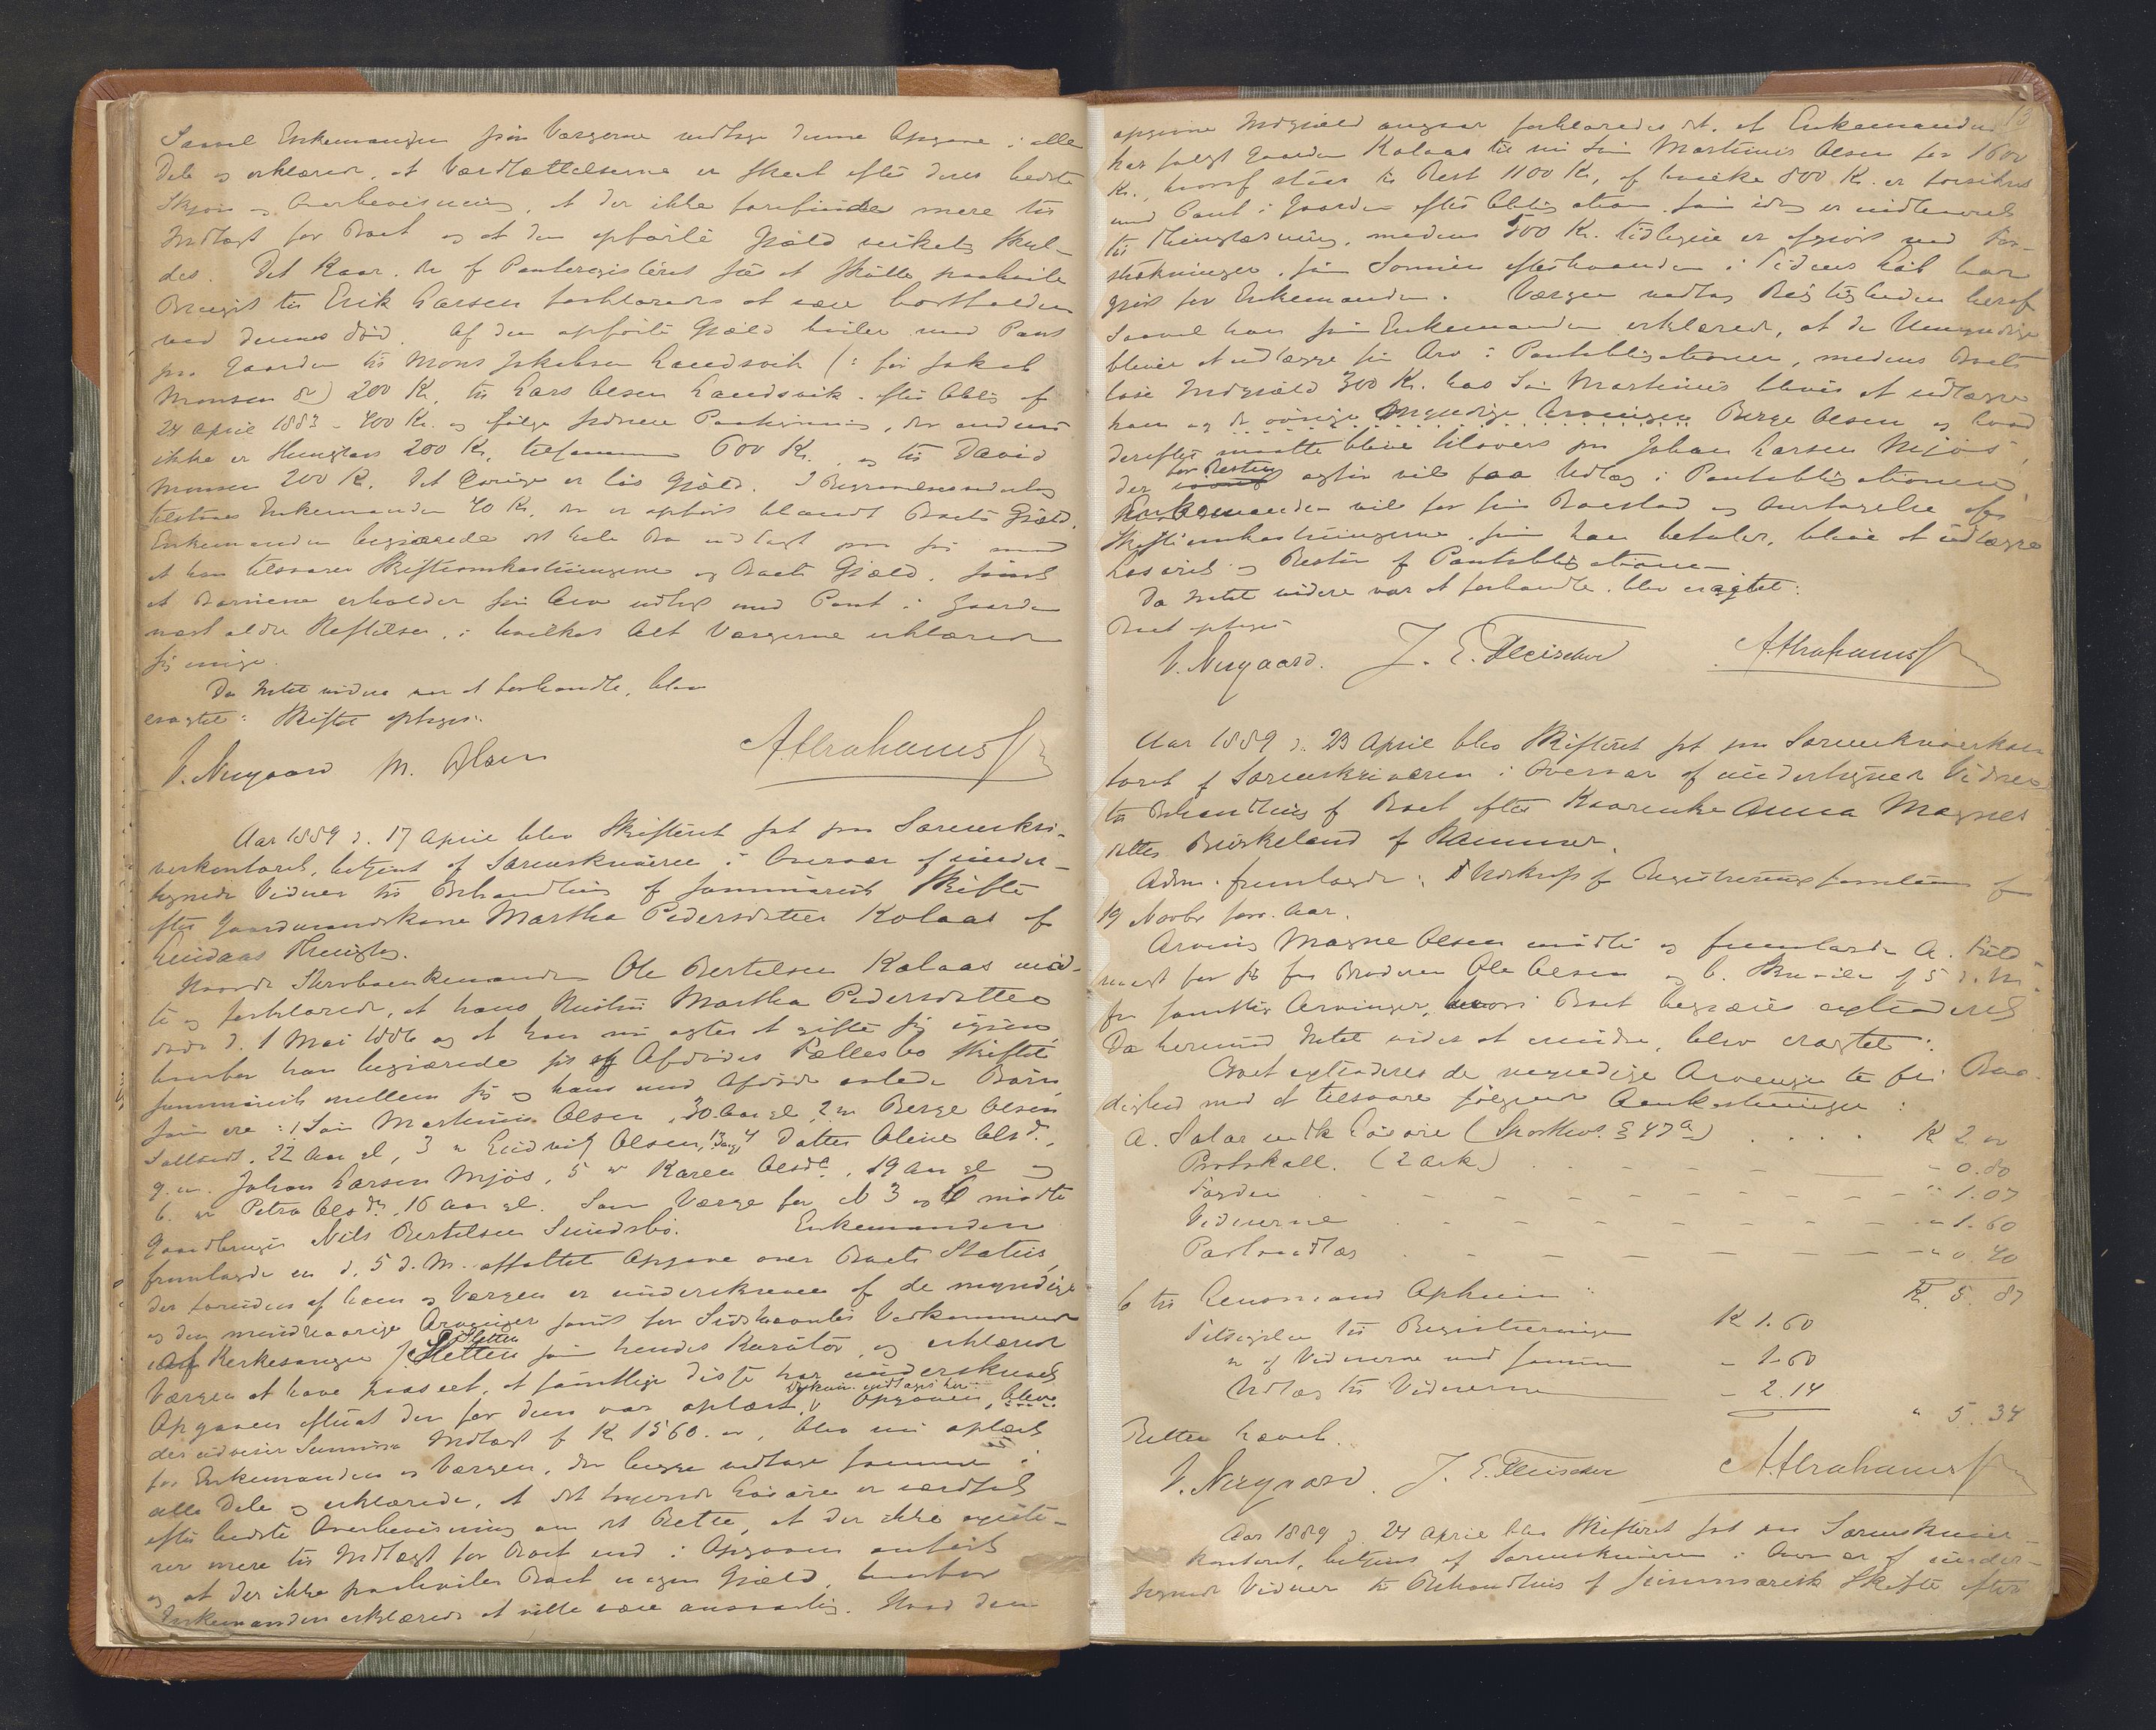 Saavel Enkemanden som Værgerne vedtoge denne Opgave i alle
Dele og erklærede, at Værdsættelserne er skeet efter deres bedste
Skjøn og Overbevisning, at der ikke forefindes mere til
Indtægt for Boet og at den opførte Gjæld virkelig skyl-
des. Det Kaar, der af Panteregistret sees at skulle paahvile
Bruget til Erik Larsen forklaredes at være bortfalden
ved dennes Død. Af den opførte Gjæld hviler med Pant
paa Gaarden til Mons Jakobsen Landsvik (: før Jakob
Monsen :) 200 Kr, til Lars Olsen Landsvik efter Oblig af
24 April 1883 - 400 Kr. og ifølge senere Paategning, der endnu
ikke er thinglæst 200 Kr, tilsammen 600 Kr. og til David
Monsen 200 Kr. Det Øvrige er løs Gjæld. I Begravelsesudlæg
tilstaaes Enkemanden 40 Kr, der er opført blandt Boets Gjæld.
Enkemanden begjærede det hele Bo udlagt paa sig mod
at han tilsvarer Skifteomkostningerne og Boets Gjæld, samt
at Børnene erholder sin Arv udlagt med Pant i Gaarden
næst ældre Heftelser, i hvilket Alt Værgerne erklærede
sig enige.
Da Intet videre var at forhandle, blev
eragtet: Skiftet optages.
V. Nygaard M. Olsen Abrahams
Aar 1889 d. 17 April blev Skifteret sat paa Sorenskri-
verkontoret, betjent af Sorenskriveren i Overvær af under-
tegnede Vidner til Behandling af summarisk Skifte
efter Gaardmandskone Martha Pedersdatter Kolaas af
Lindaas Thinglag.
Enkemanden Ole Bertelsen Kolaas mød-
te og forklarede, at hans Hustru Martha Pedersdatter
døde d. 1 Mai 1886 og at han nu agter at gifte sig igjen,
hvorfor han begjærede sit og Afdødes Fællesbo skiftet
summarisk mellem sig og hans med Afdøde avlede Børn,
som ere: 1 Søn Martinus Olsen, 30 Aar gl, 2 " Berge Olsen
22 Aar gl, 3 " Ludvig Olsen, 4 Datter Oline Olsdr.,
g. m. Johan Larsen Mjøs, 5 " Karen Olsdr, 19 Aar gl og
6. " Petra Olsdr, 16 Aar gl. Som Værge for No 3 og 6 mødte
Gaardbruger Nils Bertelsen Sundsbø. Enkemanden
fremlagde en d. 5 d. M. affattet Opgave over Boets Status,
der foruden af ham og Værgen er underskreven af de myndige
og den mindreaarige Arvinger samt for Sidstnævntes Vedkommende
af Kirkesanger Sletten som hendes Kurator, og erklærede
Værgen at have paaseet, at samtlige disse har underskrevet
Opgaven efterat den for dem var oplæst. Opgaven,
der udviser Summa Indtægt af Kr 1560. , blev nu oplæst
for Enkemanden og Værgen, der begge vedtoge samme i
alle Dele og erklærede, at det Løsøre er værdsat
efter bedste Overbevisning om det Rette, at der ikke existe-
rer mere til Indtægt for Boet end i Opgaven anført
og at der ikke paahviler Boet nogen Gjæld, hvorfor
Enkemanden erklærede at ville være ansvarlig. Hvad den
opgivne Indgjæld angaar forklaredes det, at Enkemanden
har solgt Gaarden Kolaas til sin Søn Martinus Olsen for 1600
Kr., hvoraf staar til Rest 1100 Kr, af hvilke 800 Kr. er forsikret
med Pant i Gaarden efter Obligation, som idag er indleveret
til Thinglæsning, medens 300 Kr. tidligere er afgjort ved For-
strækninger, som Sønnen efterhaanden i Tidens Løb har
gjort for Enkemanden. Værgen vedtog Rigtigheden heraf.
Saavel han som Enkemanden erklærede, at de Umyndige
bliver at udlægge sin Arv i Pantobligationen, medens Boets
løse Indgjæld 300 Kr. hos Søn Martinus bliver at udlægge
ham og de øvrige myndige Arvinger Berge Olsen og hvad
derefter maatte blive tilovers paa Johan Larsen Mjøs,
der for Resten agter vil faa Udlæg i Pantobligationen.
Enkemanden vil for sin Boeslod og Overtagelse af
Skifteomkostningerne, som han betaler, blive at udlægge
Løsøret og Resten af Pantobligationen
Da Intet videre var at forhandle, blev eragtet:
Boet optages
V. Nygaard. J. E. Fleischer Abrahams
Aar 1889 d. 23 April blev Skifteret sat paa Sorenskriverkon-
toret af Sorenskriveren i Overvær af undertegnede Vidner
til Behandling af Boet efter Kaarenke Anna Magnes-
datter Birkeland af Hammer.
Adm. fremlagde: Udskrift af Registreringsforretning af
19 Novbr forr. Aar.
Arving Magne Olsen mødte og fremlagde A. Fuld-
magt for sig fra Broderen Ole Olsen og b. af 5 d. M.
fra samtlige Arvinger, hvori Boet begjæres extraderet
Da hermed Intet videre at erindre, blev eragtet:
Boet extraderes de myndige Arvinger til fri Raa-
dighed mod at tilsvare følgende Omkostninger:
a. Salar (Sportlovs § 47a) . . . . K 2 "
Protokoll. (2 Ark) - 0.80
Fogden - - - - - - - - " 1.07
Vidnerne - - - - - - - " 1.60
- - - - - " 0.40
K. 5. 87
b til Lensmand Opheim:
Tilsigelse til Registreringen K 1.60
" af Vidnerne ved samme - 1.60
Udlæg til Vidnerne - 2.14
" 5. 34
Retten hævet.
V. Nygaard. J. E. Fleischer Abrahams
Aar 1889 d. 24 April blev Skifteret sat paa Sorenskriver-
kontoret, betjent af Sorenskriveren i Overvær af under-
tegnede Vidner til Behandling af summarisk Skifte efter